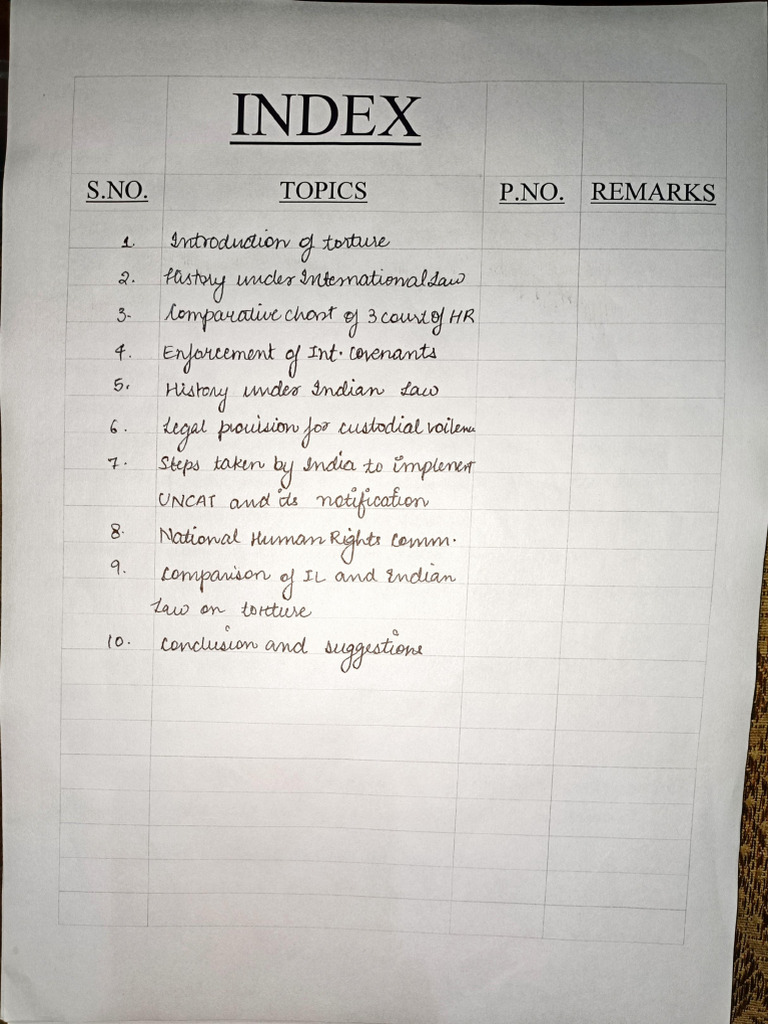 INDEX
S.NO. TOPICS P.NO. REMARKS
1. Introduction of torture
2. History under International Law
3. Comparative chart of 3 court of HR
4. Enforcement of Int. covenants
5. History under Indian Law
6. Legal provision for custodial voilence
7. Steps taken by India to implement
UNCAT and its notification
8. National Human Rights Comm.
9. Comparison of IL and Indian
Law on torture
10. Conclusion and suggestions